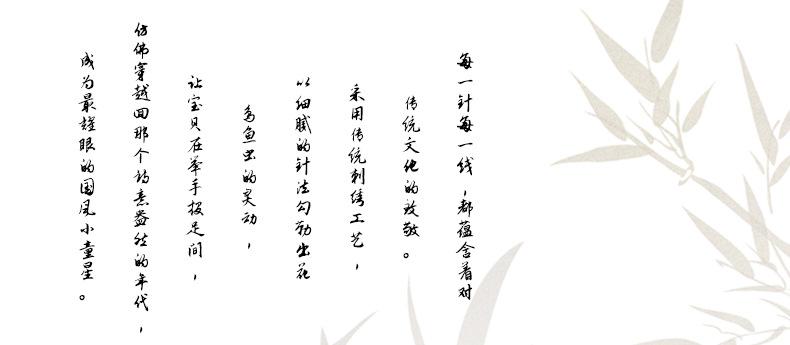 每一针每一线，都蕴含着对
传统文化的致敬。
采用传统刺绣工艺，
以细腻的针法勾勒出花
鸟鱼虫的灵动，
让宝贝在举手投足间，
仿佛穿越回那个诗意盎然的年代，
成为最耀眼的国风小童星。